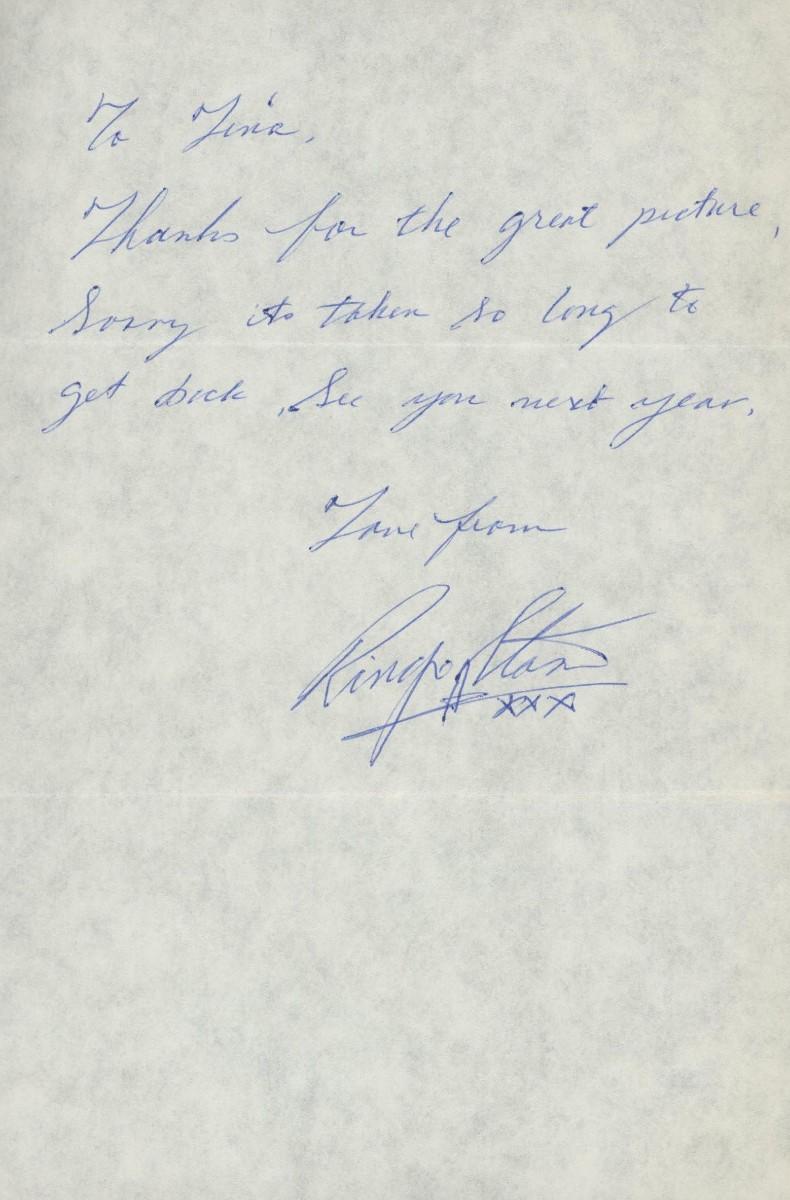 To Tina,
Thanks for the great picture,
Sorry its taken so long to
get back, See you next year,
Love from
Ringo Starr
xxx